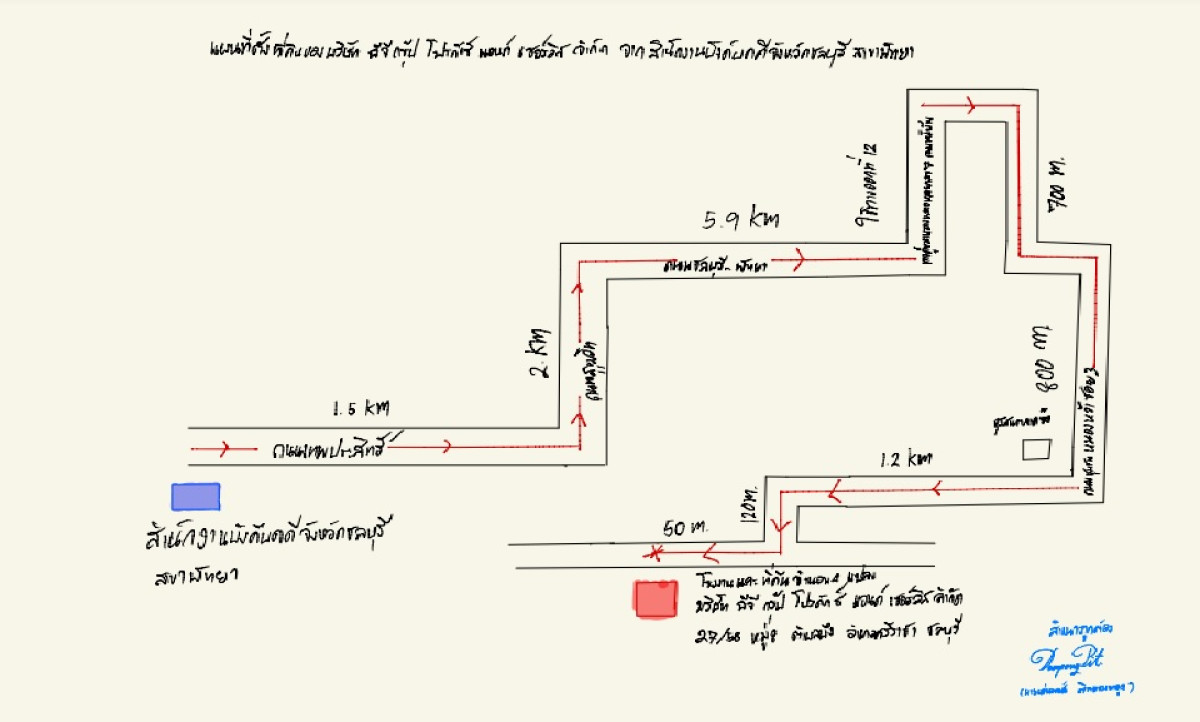 แผนที่ตั้งที่ดินของบริษัท พีจี กรุ๊ป โปรดักส์ แอนด์ เซอร์วิส จำกัด จาก สำนักงานบังคับคดีจังหวัดชลบุรี สาขาพัทยา
ใช้ทางออกที่ 12
700 m.
5.9 km
ถนนชลบุรี-พัทยา
2 km
ถนนสุขุมวิท
800 m
1.5 km
ถนนเทพประสิทธิ์
1.2 km
120 m.
50 m.
สำนักงานบังคับคดีจังหวัดชลบุรี
สาขาพัทยา
โรงงานและที่ดินจำนวน 2 แปลง
บริษัท พีจี กรุ๊ป โปรดักส์ แอนด์ เซอร์วิส จำกัด
ตำบลบึง อำเภอศรีราชา ชลบุรี
สำเนาถูกต้อง